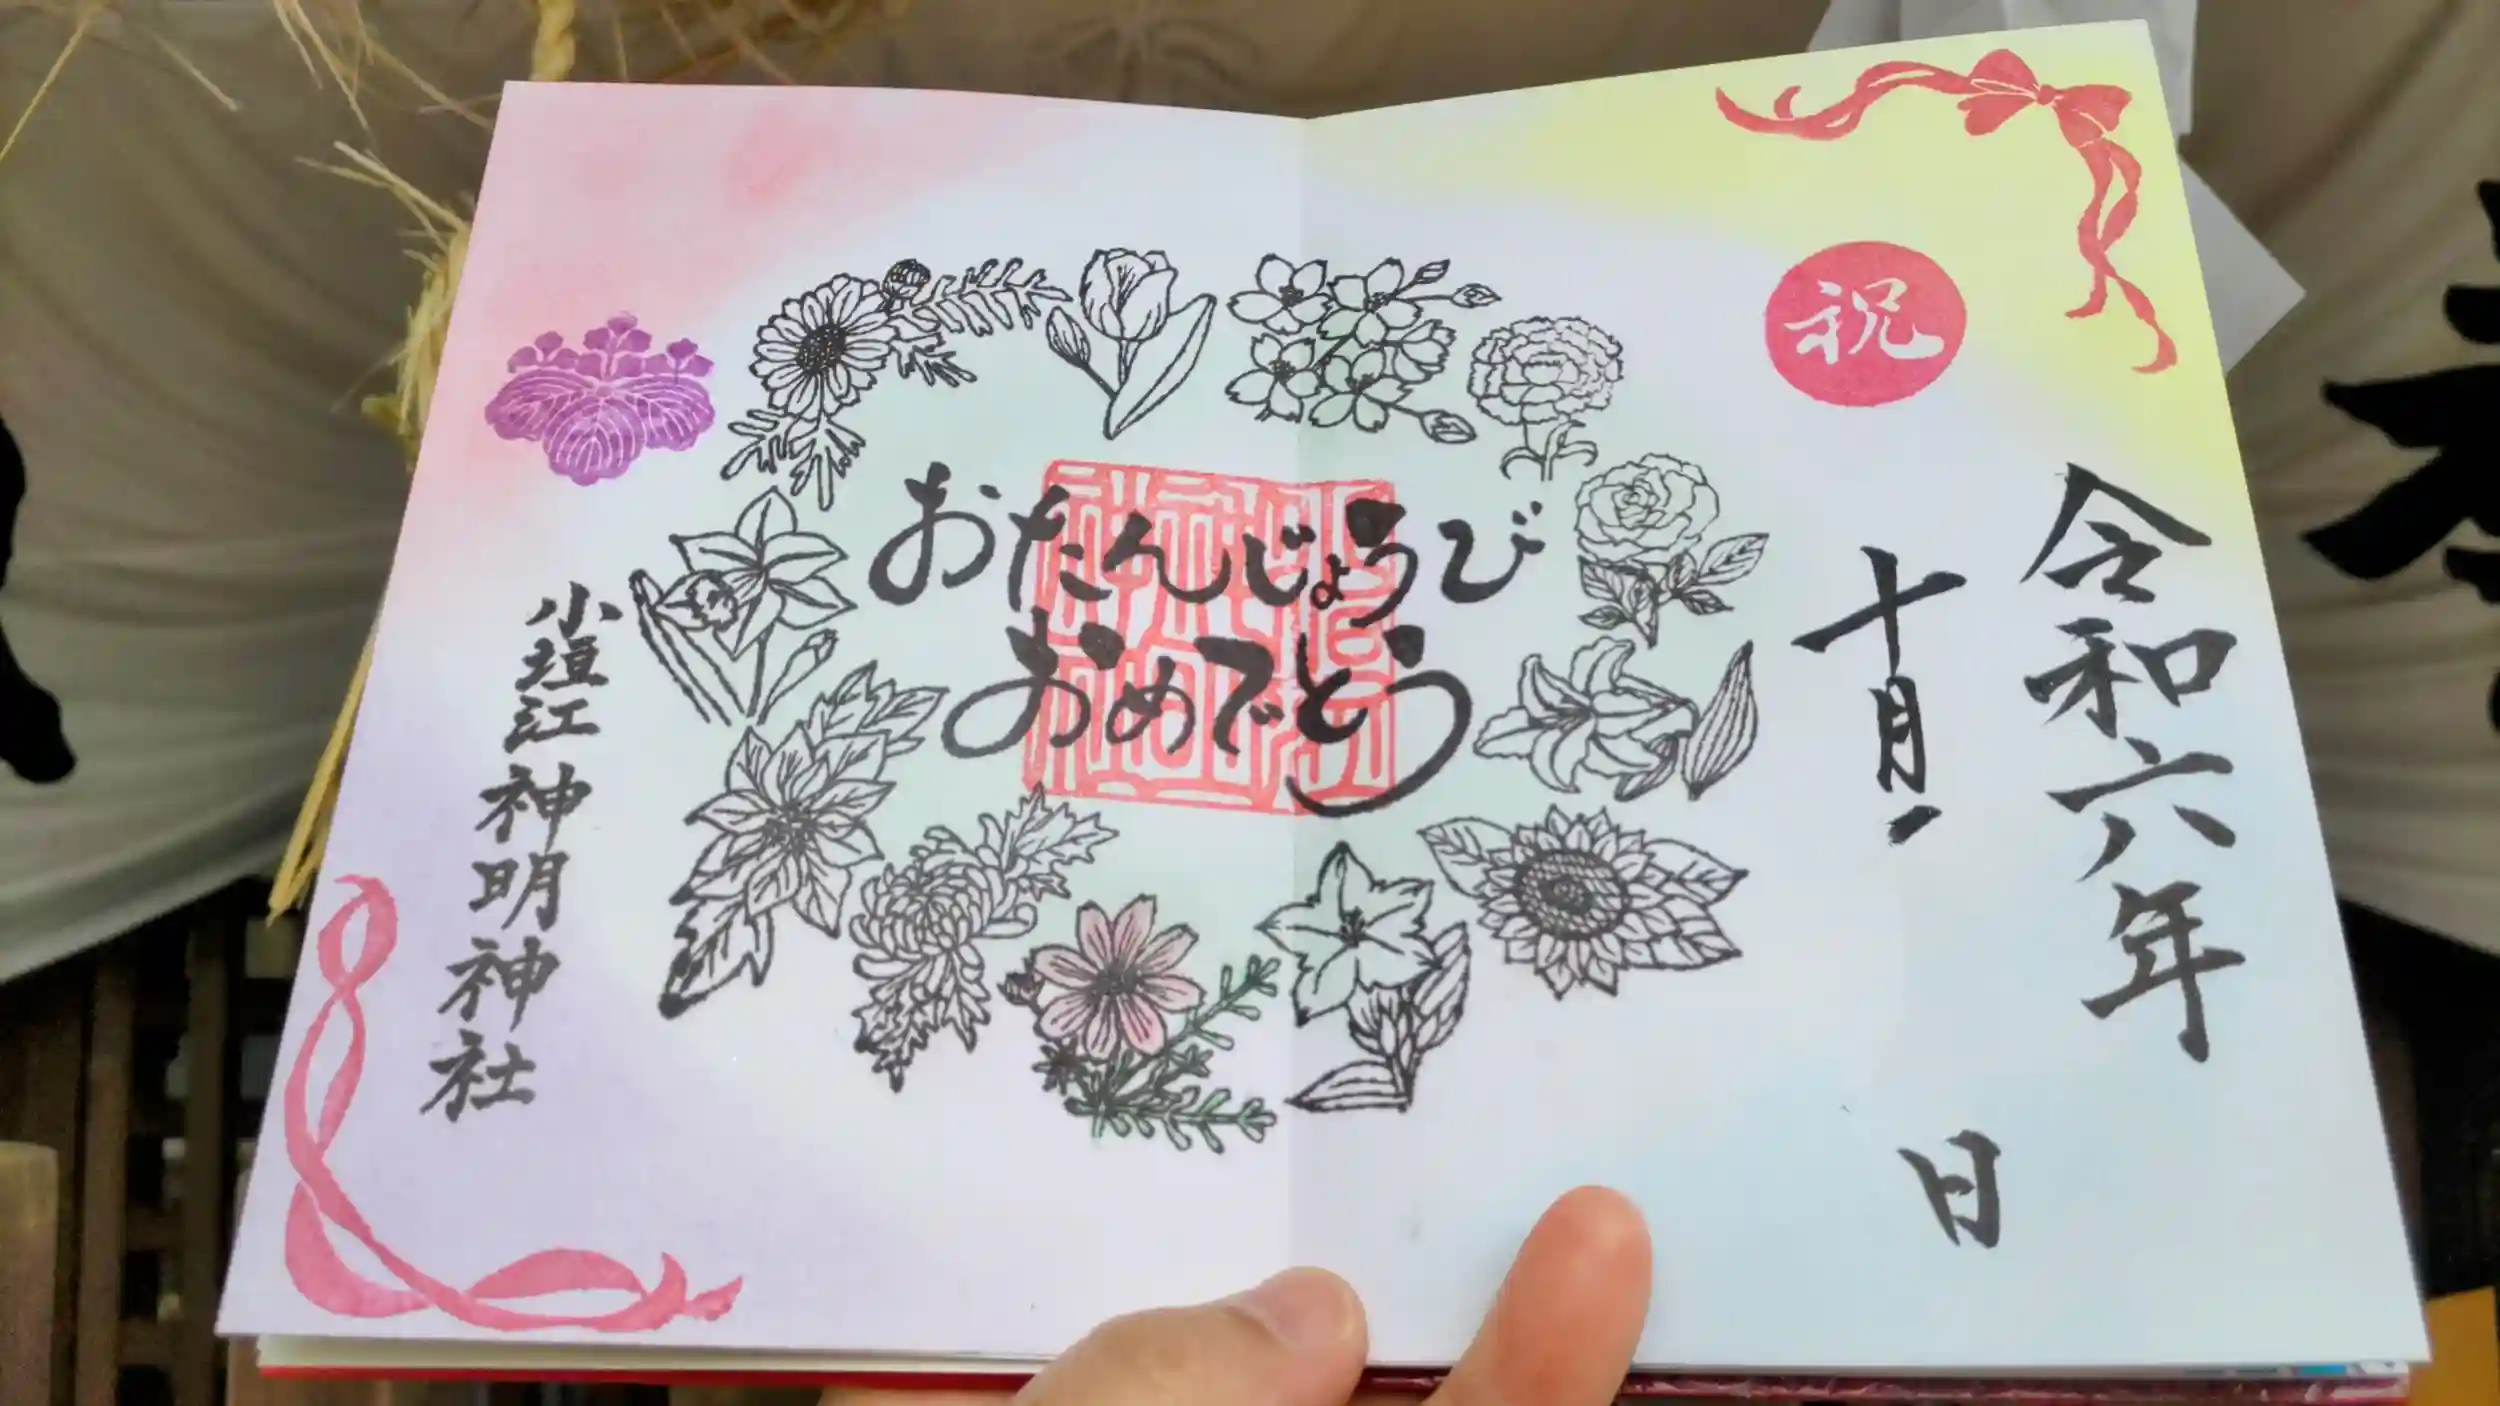 祝
令和六年
十月
日
おたんじょうび
おめでとう
小垣江神明神社